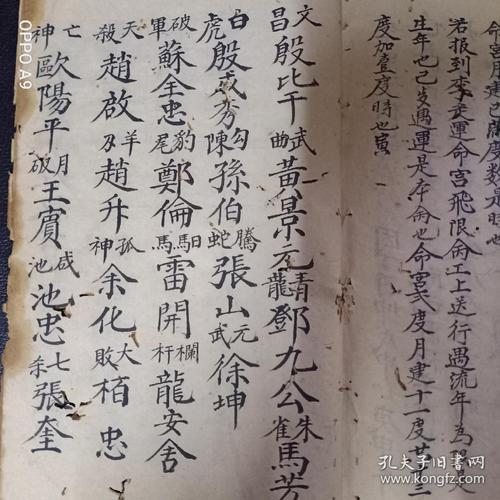 度加壹度時也寅
生年也己岁遇運是夲俞也命宮弍度月建十一度廿三
若报到李支運命宮飛限俞工上送行遇流年為
文昌殷比干武曲黃景元青龍鄧九公朱雀馬芳
白虎殷成芳勾陳孫伯騰蛇張山元武徐坤
破軍蘇全忠豹尾鄭倫馹馬雷開欄杆龍安舍
天殺趙啟羊刃趙升孤神余化大敗栢忠
亡神歐陽平月破王賓咸池池忠七杀張奎
OPPO A9
孔夫子旧书网
kongfz.com